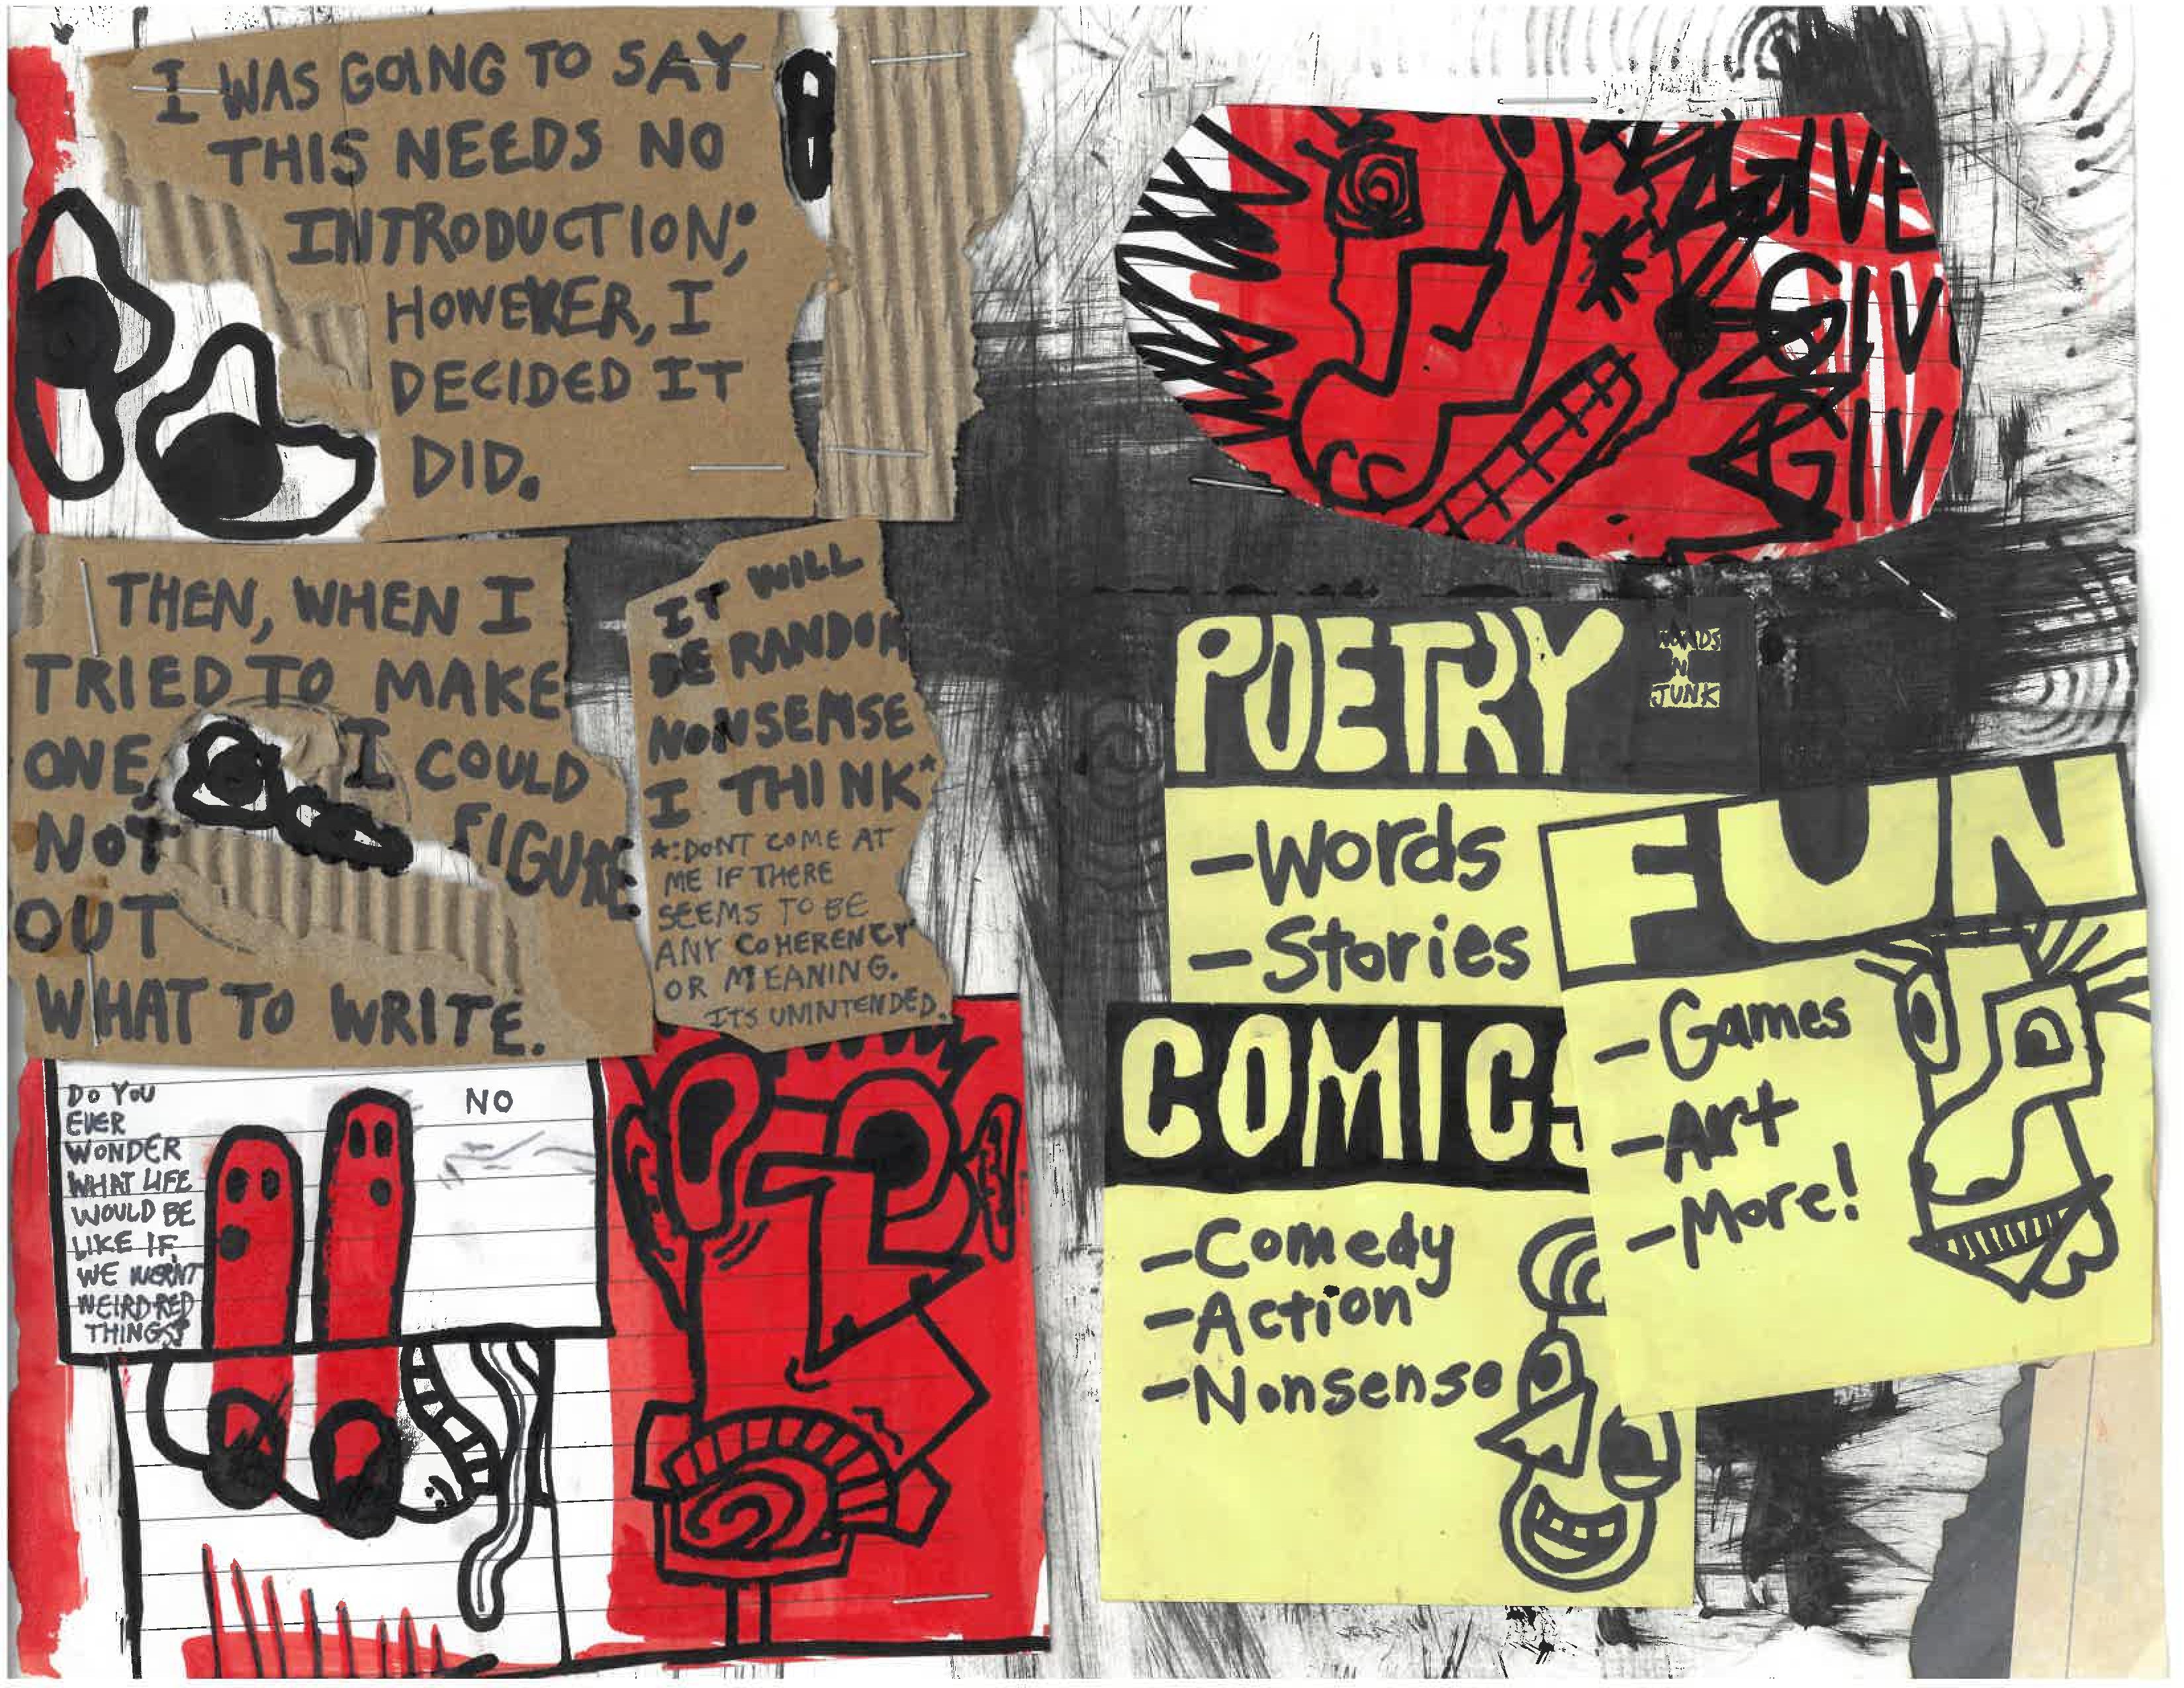 I WAS GOING TO SAY
THIS NEEDS NO
INTRODUCTION;
HOWEVER, I
DECIDED IT
DID.
THEN, WHEN I
TRIED TO MAKE
ONE, I COULD
NOT FIGURE
OUT
WHAT TO WRITE.
IT WILL
BE RANDOM
NONSENSE
I THINK*
*:DONT COME AT
ME IF THERE
SEEMS TO BE
ANY COHERENCY
OR MEANING.
ITS UNINTENDED.
DO YOU
EVER
WONDER
WHAT LIFE
WOULD BE
LIKE IF
WE WERNT
WEIRD RED
THINGS?
NO
GIVE
GIV
GIV
POETRY
WORDS
N
JUNK
-Words
-Stories
COMICS
-Comedy
-Action
-Nonsense
FUN
-Games
-Art
-More!